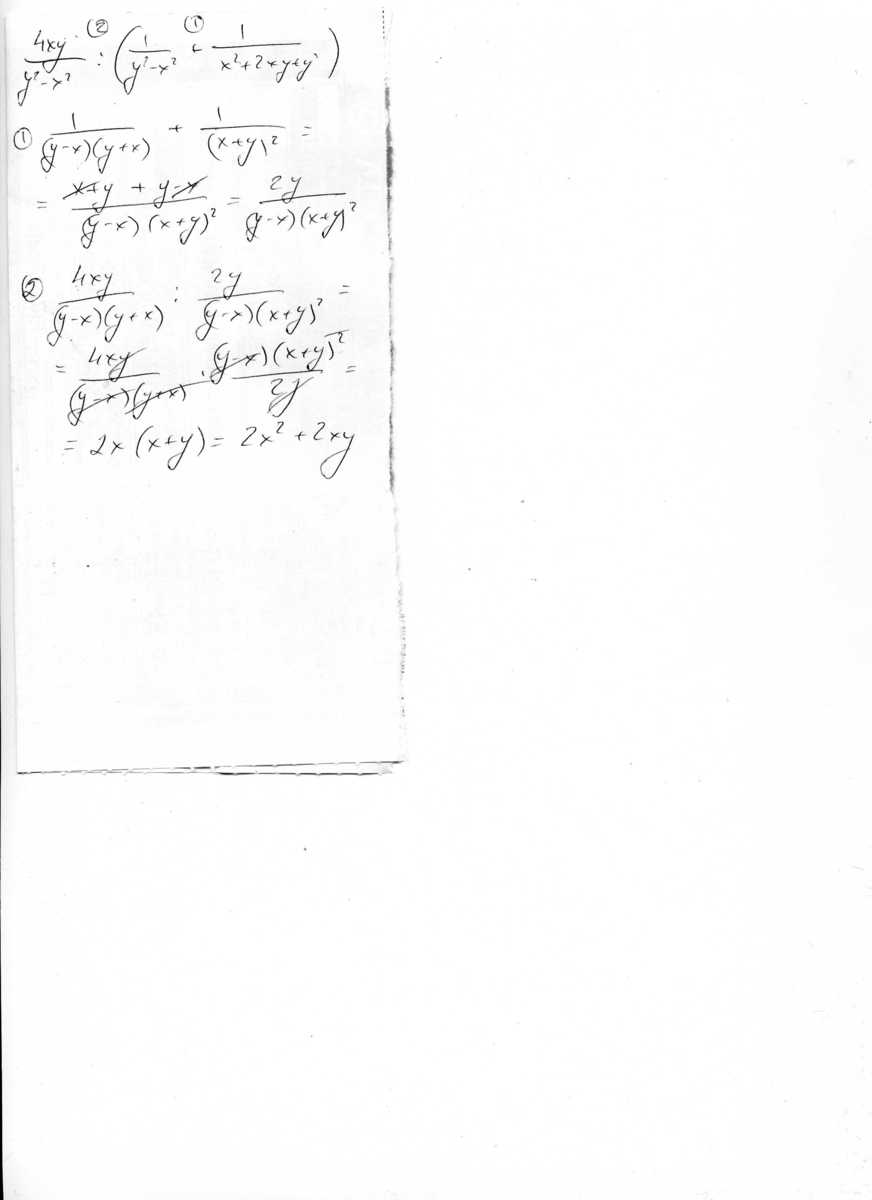 ② ①
4xy / (y²-x²) : (1 / (y²-x²) + 1 / (x²+2xy+y²))
① 1 / ((y-x)(y+x)) + 1 / (x+y)² =
= (x+y + y-x) / ((y-x)(x+y)²) = 2y / ((y-x)(x+y)²)
② 4xy / ((y-x)(y+x)) : 2y / ((y-x)(x+y)²) =
= 4xy / ((y-x)(y+x)) · (y-x)(x+y)² / 2y =
= 2x(x+y) = 2x² + 2xy